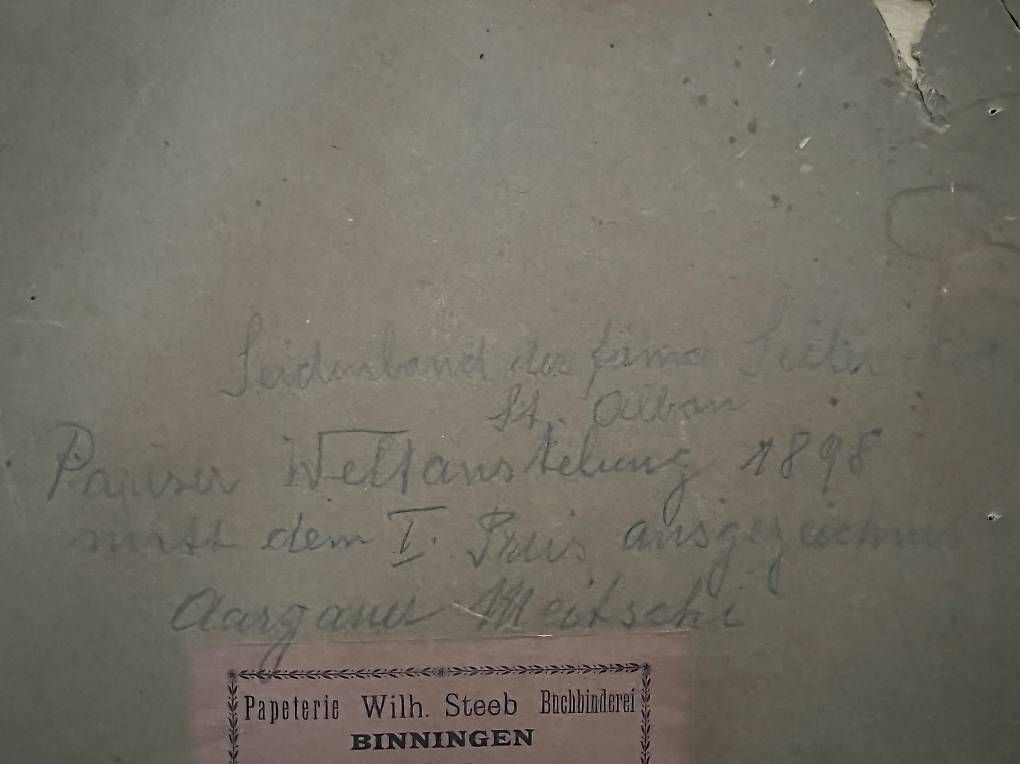 Seidenband der firma
St. Alban
Pariser Weltanstelung 1898
mitt dem I. Preis ausgezeichnet
Aargauer Meitschi
Papeterie Wilh. Steeb Buchbinderei
BINNINGEN